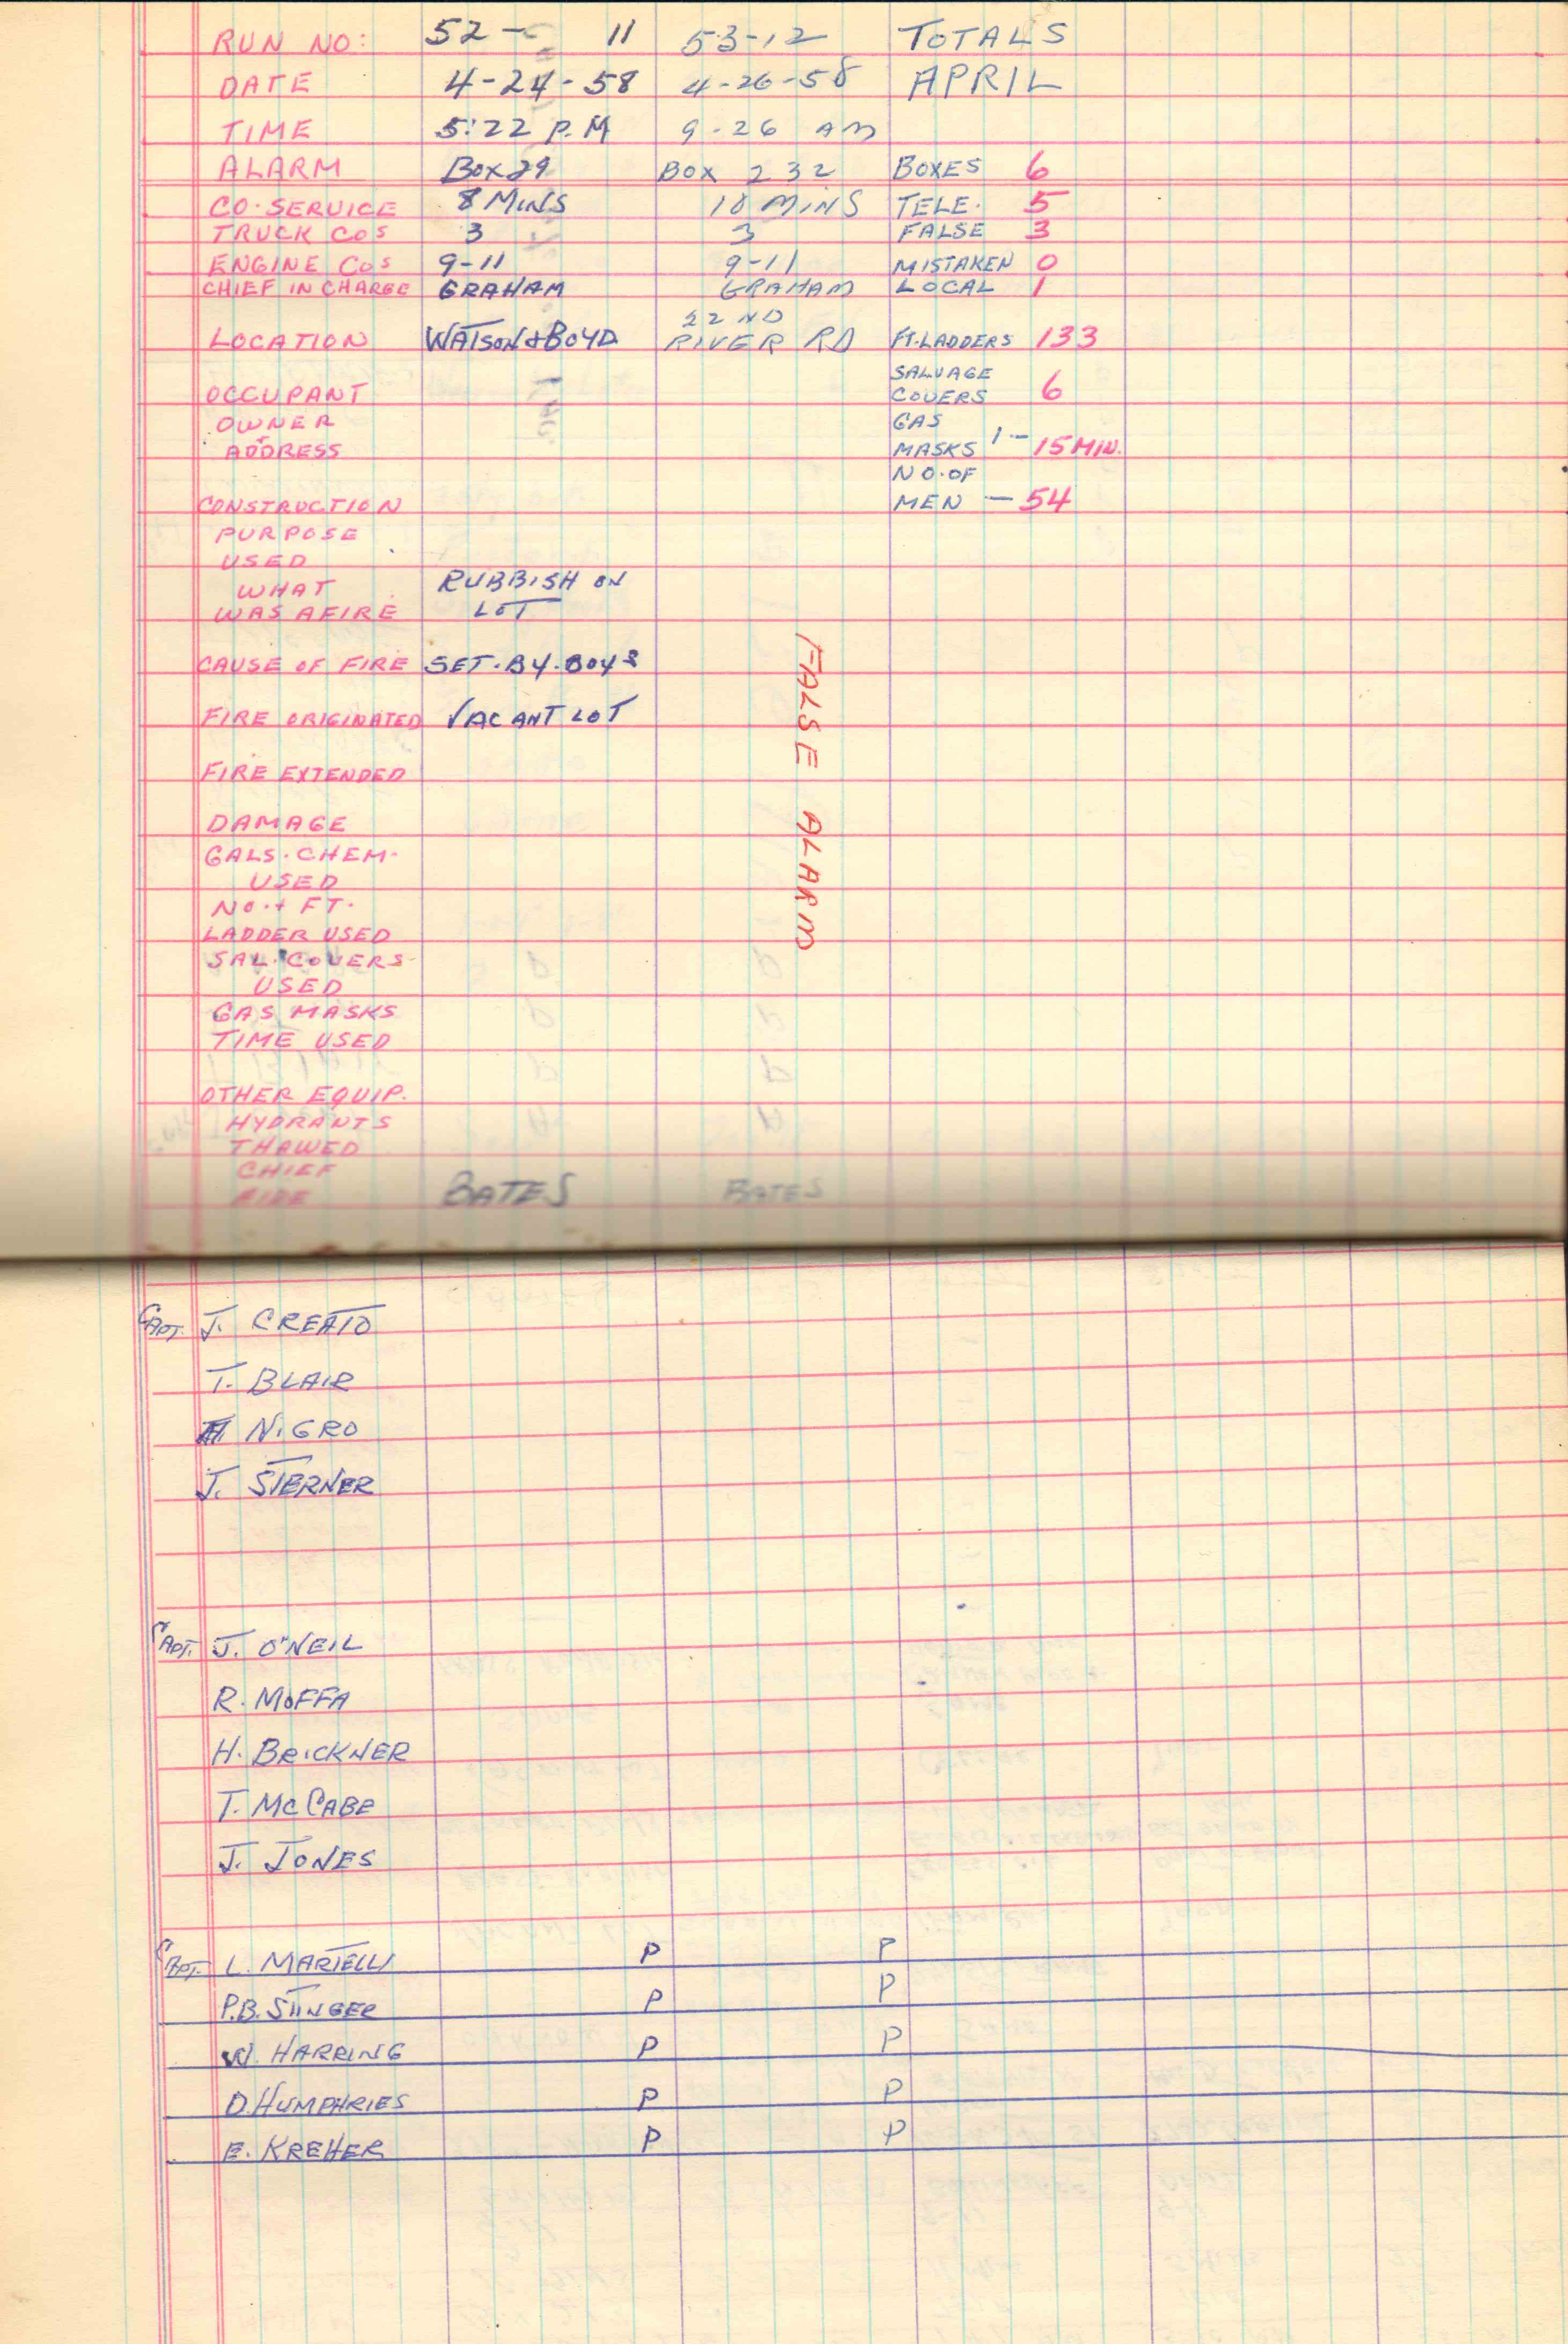 RUN NO: 52- 11 53-12 TOTALS
DATE 4-24-58 4-26-58 APRIL
TIME 5:22 P.M 9-26 AM
ALARM BOX 29 BOX 232 BOXES 6
CO. SERVICE 8 MINS 10 MINS TELE. 5
TRUCK COS 3 3 FALSE 3
ENGINE COS 9-11 9-11 MISTAKEN 0
CHIEF IN CHARGE GRAHAM GRAHAM LOCAL 1
22ND
LOCATION WATSON & BOYD RIVER RD FT. LADDERS 133
SALVAGE
OCCUPANT COVERS 6
OWNER GAS
+ ADDRESS MASKS 1 - 15 MIN.
NO. OF
CONSTRUCTION MEN - 54
PURPOSE
USED
WHAT RUBBISH ON
WAS AFIRE LOT
CAUSE OF FIRE SET. BY. BOYS
FIRE ORIGINATED VACANT LOT
FIRE EXTENDED
FALSE ALARM
DAMAGE
GALS. CHEM.
USED
NO. + FT.
LADDER USED
SAL. COVERS
USED
GAS MASKS
TIME USED
OTHER EQUIP.
HYDRANTS
THAWED
CHIEF
AIDE BATES BATES
CAPT. J. CREATO
T. BLAIR
NIGRO
J. STERNER
CAPT. J. O'NEIL
R. MOFFA
H. BRICKNER
T. MCCABE
J. JONES
CAPT. L. MARTELLI P P
P.B. STINGER P P
W. HARRING P P
D. HUMPHRIES P P
E. KREHER P P